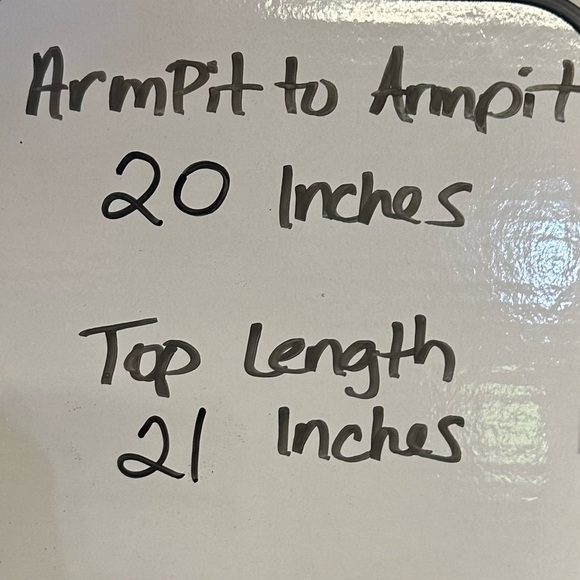 ArmPit to Armpit
20 Inches
Top Length
21 Inches